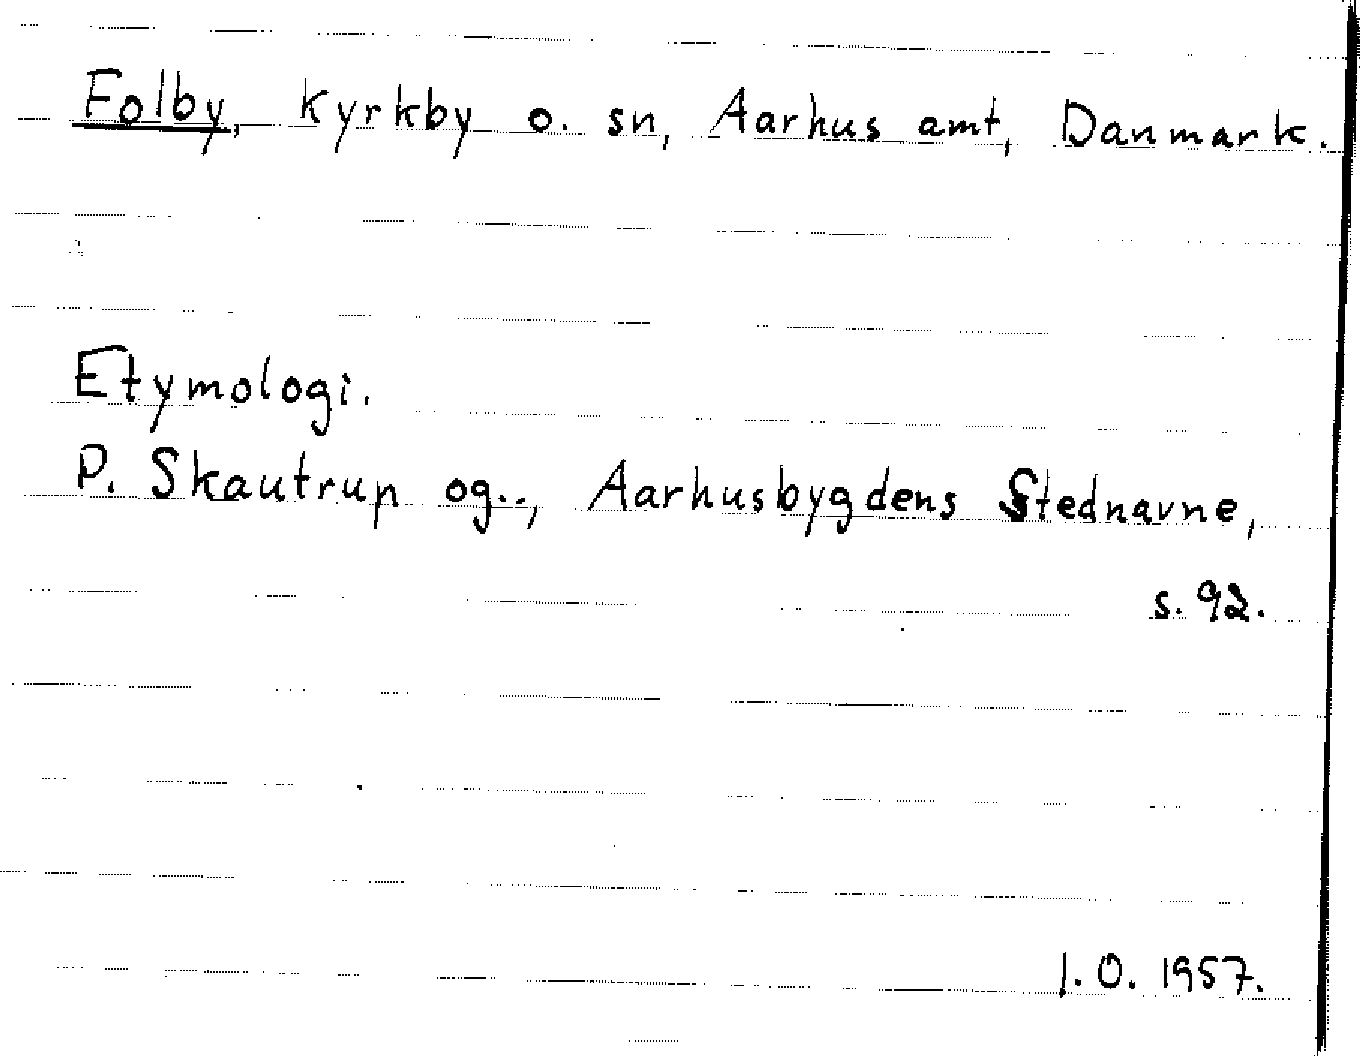 Folby, kyrkby o. sn, Aarhus amt, Danmark.
Etymologi.
P. Skautrup og.., Aarhusbygdens Stednavne,
s. 92.
I. O. 1957.